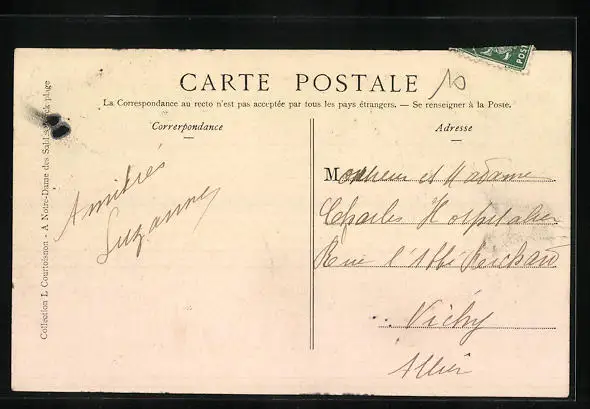 CARTE POSTALE
10
La Correspondance au recto n'est pas acceptée par tous les pays étrangers. — Se renseigner à la Poste.
Correspondance
Amitiés
Suzanne
Adresse
Monsieur et Madame
Charles Hospitalier
Rue l'Abbé
Vichy
Allier
Collection L Courtoisnon - A Notre-Dame des plage
POST